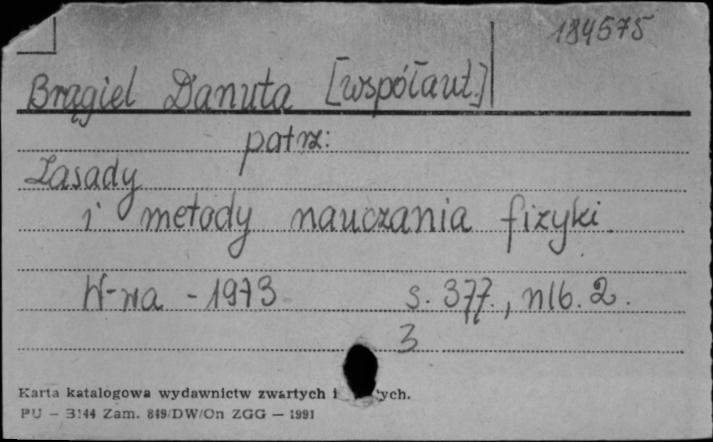 184575
Brągiel Danuta [współaut.]
patrz:
Zasady
i metody nauczania fizyki.
W-wa - 1973 s. 377, nlb. 2.
3
Karta katalogowa wydawnictw zwartych i ych.
PU - 3144 Zam. 849/DW/On ZGG - 1991